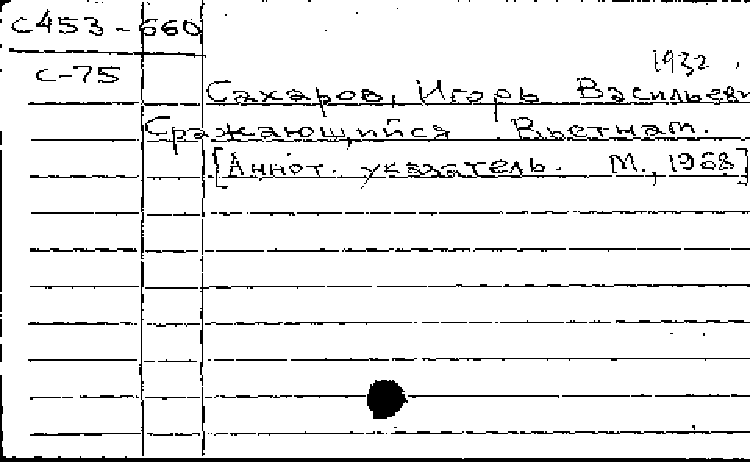 С453-660
С-75
1932
Сахаров, Игорь Васильеви
Сражающийся Вьетнам.
[Аннот. указатель. М., 1968]